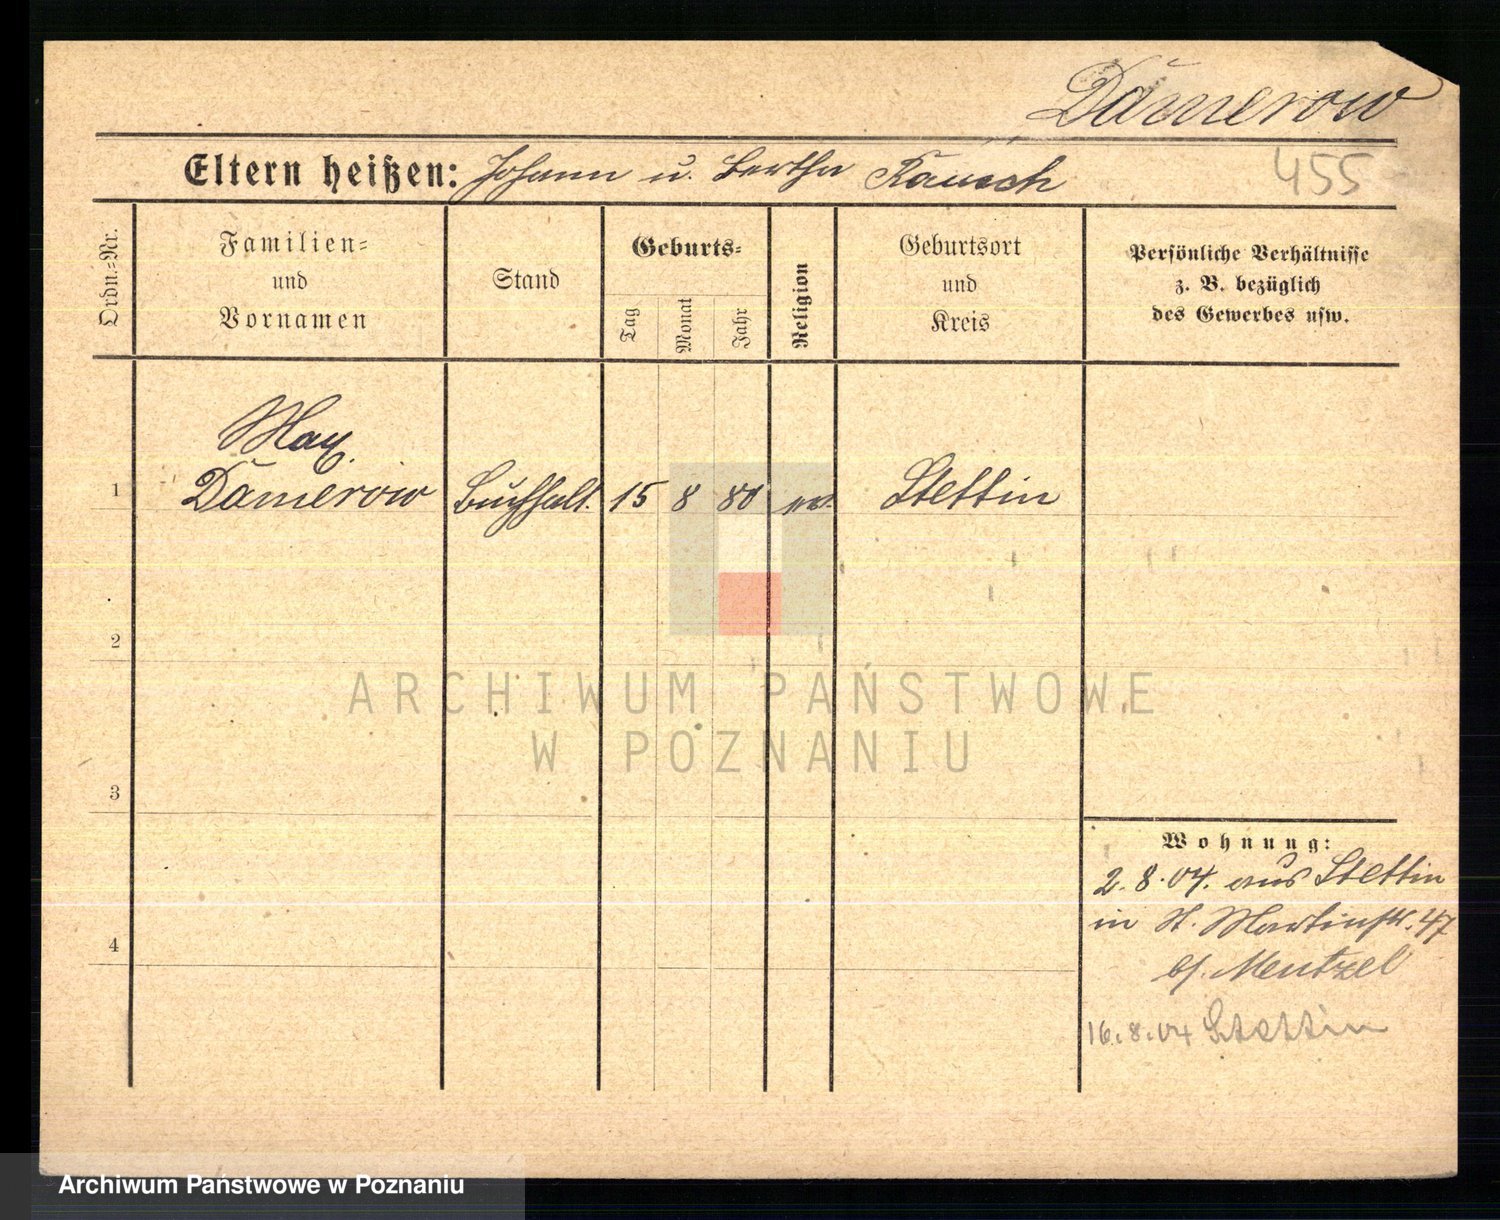 Dămerow
455
Eltern heißen: Johann u. Bertha Rausch
Ordn.=Nr.
Familien=
und
Vornamen
Stand
Geburts=
Tag
Monat
Jahr
Religion
Geburtsort
und
Kreis
Persönliche Verhältnisse
z. B. bezüglich
des Gewerbes usw.
Max
1 Dămerow Buchhalt. 15 8 80 ev. Stettin
2
3
4
Wohnung:
2.8.04. aus Stettin
in St. Martinstr. 47
b/. Mentzel
16.8.04 Stettin
ARCHIWUM PAŃSTWOWE
W POZNANIU
Archiwum Państwowe w Poznaniu